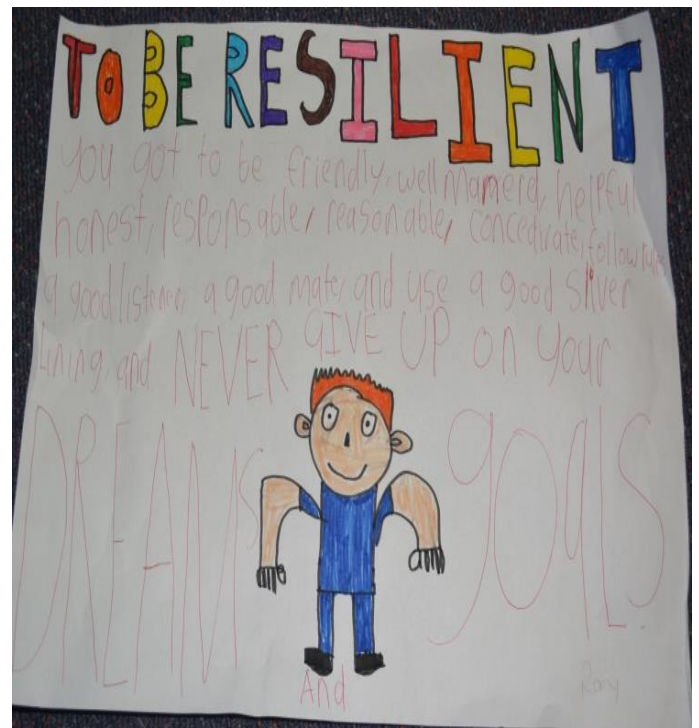 TO BE RESILIENT
You got to be friendly, well mamerd, helpful
honest, responsable, reasonable, concedirate, follow rules
a good listener, a good mate, and use a good silver
lining, and NEVER GIVE UP on your
DREAMS goals
And
Rory